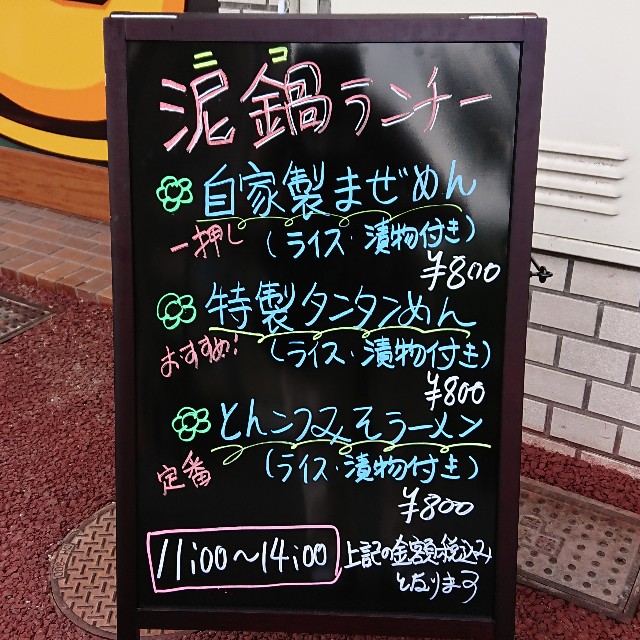 ニコ
泥鍋ランチー
自家製まぜめん
一押し (ライス・漬物付き)
¥800
特製タンタンめん
おすすめ! (ライス・漬物付き)
¥800
とんこつみそラーメン
定番 (ライス・漬物付き)
¥800
11:00〜14:00 上記の金額税込み
となります